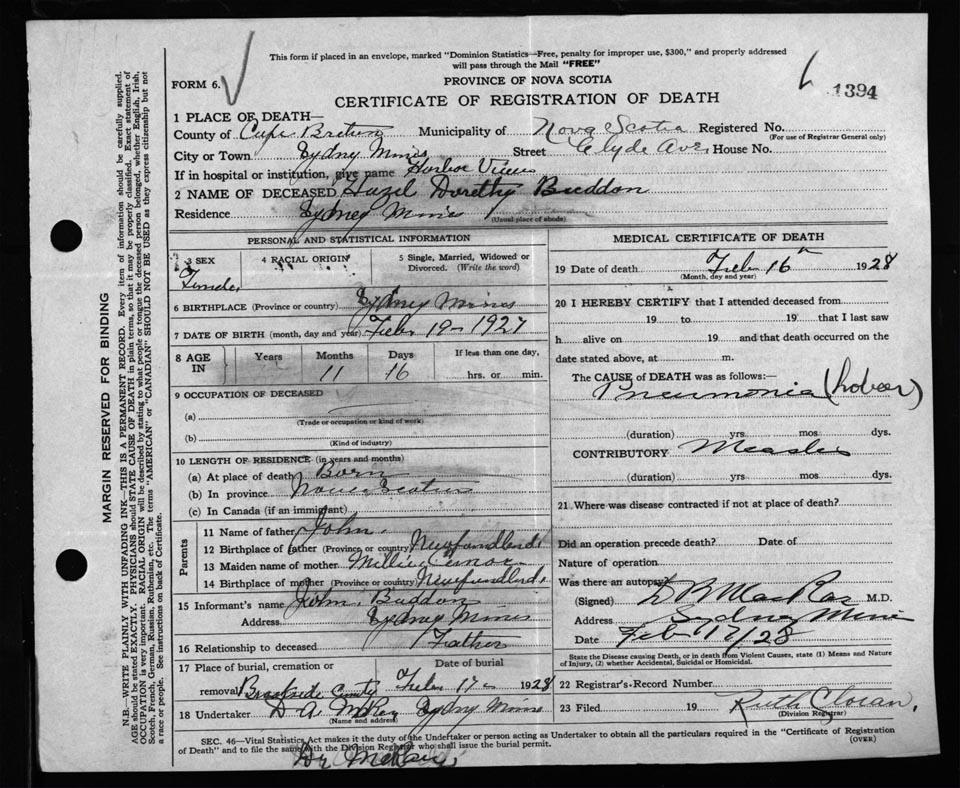 This form if placed in an envelope, marked "Dominion Statistics—Free, penalty for improper use, $300," and properly addressed
will pass through the Mail "FREE"
FORM 6.
PROVINCE OF NOVA SCOTIA
1394
CERTIFICATE OF REGISTRATION OF DEATH
1 PLACE OF DEATH—
County of Cape Breton Municipality of Nova Scotia Registered No.
(For use of Registrar General only)
City or Town Sydney Mines Street Clyde Ave. House No.
If in hospital or institution, give name Harbor View
2 NAME OF DECEASED Hazel Dorothy Buddon
Residence Sydney Mines
(Usual place of abode)
PERSONAL AND STATISTICAL INFORMATION
3 SEX 4 RACIAL ORIGIN 5 Single, Married, Widowed or
Divorced. (Write the word)
6 BIRTHPLACE (Province or country) Sydney Mines
7 DATE OF BIRTH (month, day and year) Feb 19 - 1927
8 AGE IN Years Months Days If less than one day,
11 16 hrs. or min.
9 OCCUPATION OF DECEASED
(a)
(Trade or occupation or kind of work)
(b)
(Kind of industry)
10 LENGTH OF RESIDENCE (in years and months)
(a) At place of death Born
(b) In province Nova Scotia
(c) In Canada (if an immigrant)
Parents
11 Name of father John
12 Birthplace of father (Province or country) Newfundland
13 Maiden name of mother Millie
14 Birthplace of mother (Province or country) Newfundland
15 Informant's name John Buddon
Address Sydney Mines
16 Relationship to deceased Father
17 Place of burial, cremation or Date of burial
removal Brookside Cemty Feb 17 - 1928
18 Undertaker D A McKay Sydney Mines
(Name and address)
MEDICAL CERTIFICATE OF DEATH
19 Date of death Feb 16th 1928
(Month, day and year)
20 I HEREBY CERTIFY that I attended deceased from
19 to 19 that I last saw
h alive on 19 and that death occurred on the
date stated above, at m.
The CAUSE of DEATH was as follows:—
Pneumonia (Lobar)
(duration) yrs. mos. dys.
CONTRIBUTORY Measles
(duration) yrs. mos. dys.
21 Where was disease contracted if not at place of death?
Did an operation precede death? Date of
Nature of operation
Was there an autopsy?
(Signed) D R MacRae M.D.
Address Sydney Mines
Date Feb 17/28
State the Disease causing Death, or in death from Violent Causes, state (1) Means and Nature
of Injury, (2) whether Accidental, Suicidal or Homicidal.
22 Registrar's Record Number
23 Filed 19 Ruth Cloran
(Division Registrar)
SEC. 46—Vital Statistics Act makes it the duty of the Undertaker or person acting as Undertaker to obtain all the particulars required in the "Certificate of Registration
of Death" and to file the same with the Division Registrar who shall issue the burial permit.
(OVER)
Dr McRae
MARGIN RESERVED FOR BINDING
N.B.—WRITE PLAINLY WITH UNFADING INK—THIS IS A PERMANENT RECORD. Every item of information should be carefully supplied.
AGE should be stated EXACTLY. PHYSICIANS should STATE CAUSE OF DEATH in plain terms, so that it may be properly classified. Exact statement of
OCCUPATION is very important. RACIAL ORIGIN will be described by stating to what people or tongue the deceased person belonged, whether English, Irish,
Scotch, French, German, Russian, Ruthenian, etc. The terms "AMERICAN" or "CANADIAN" SHOULD NOT BE USED as they express citizenship but not
a race or people. See instructions on back of Certificate.